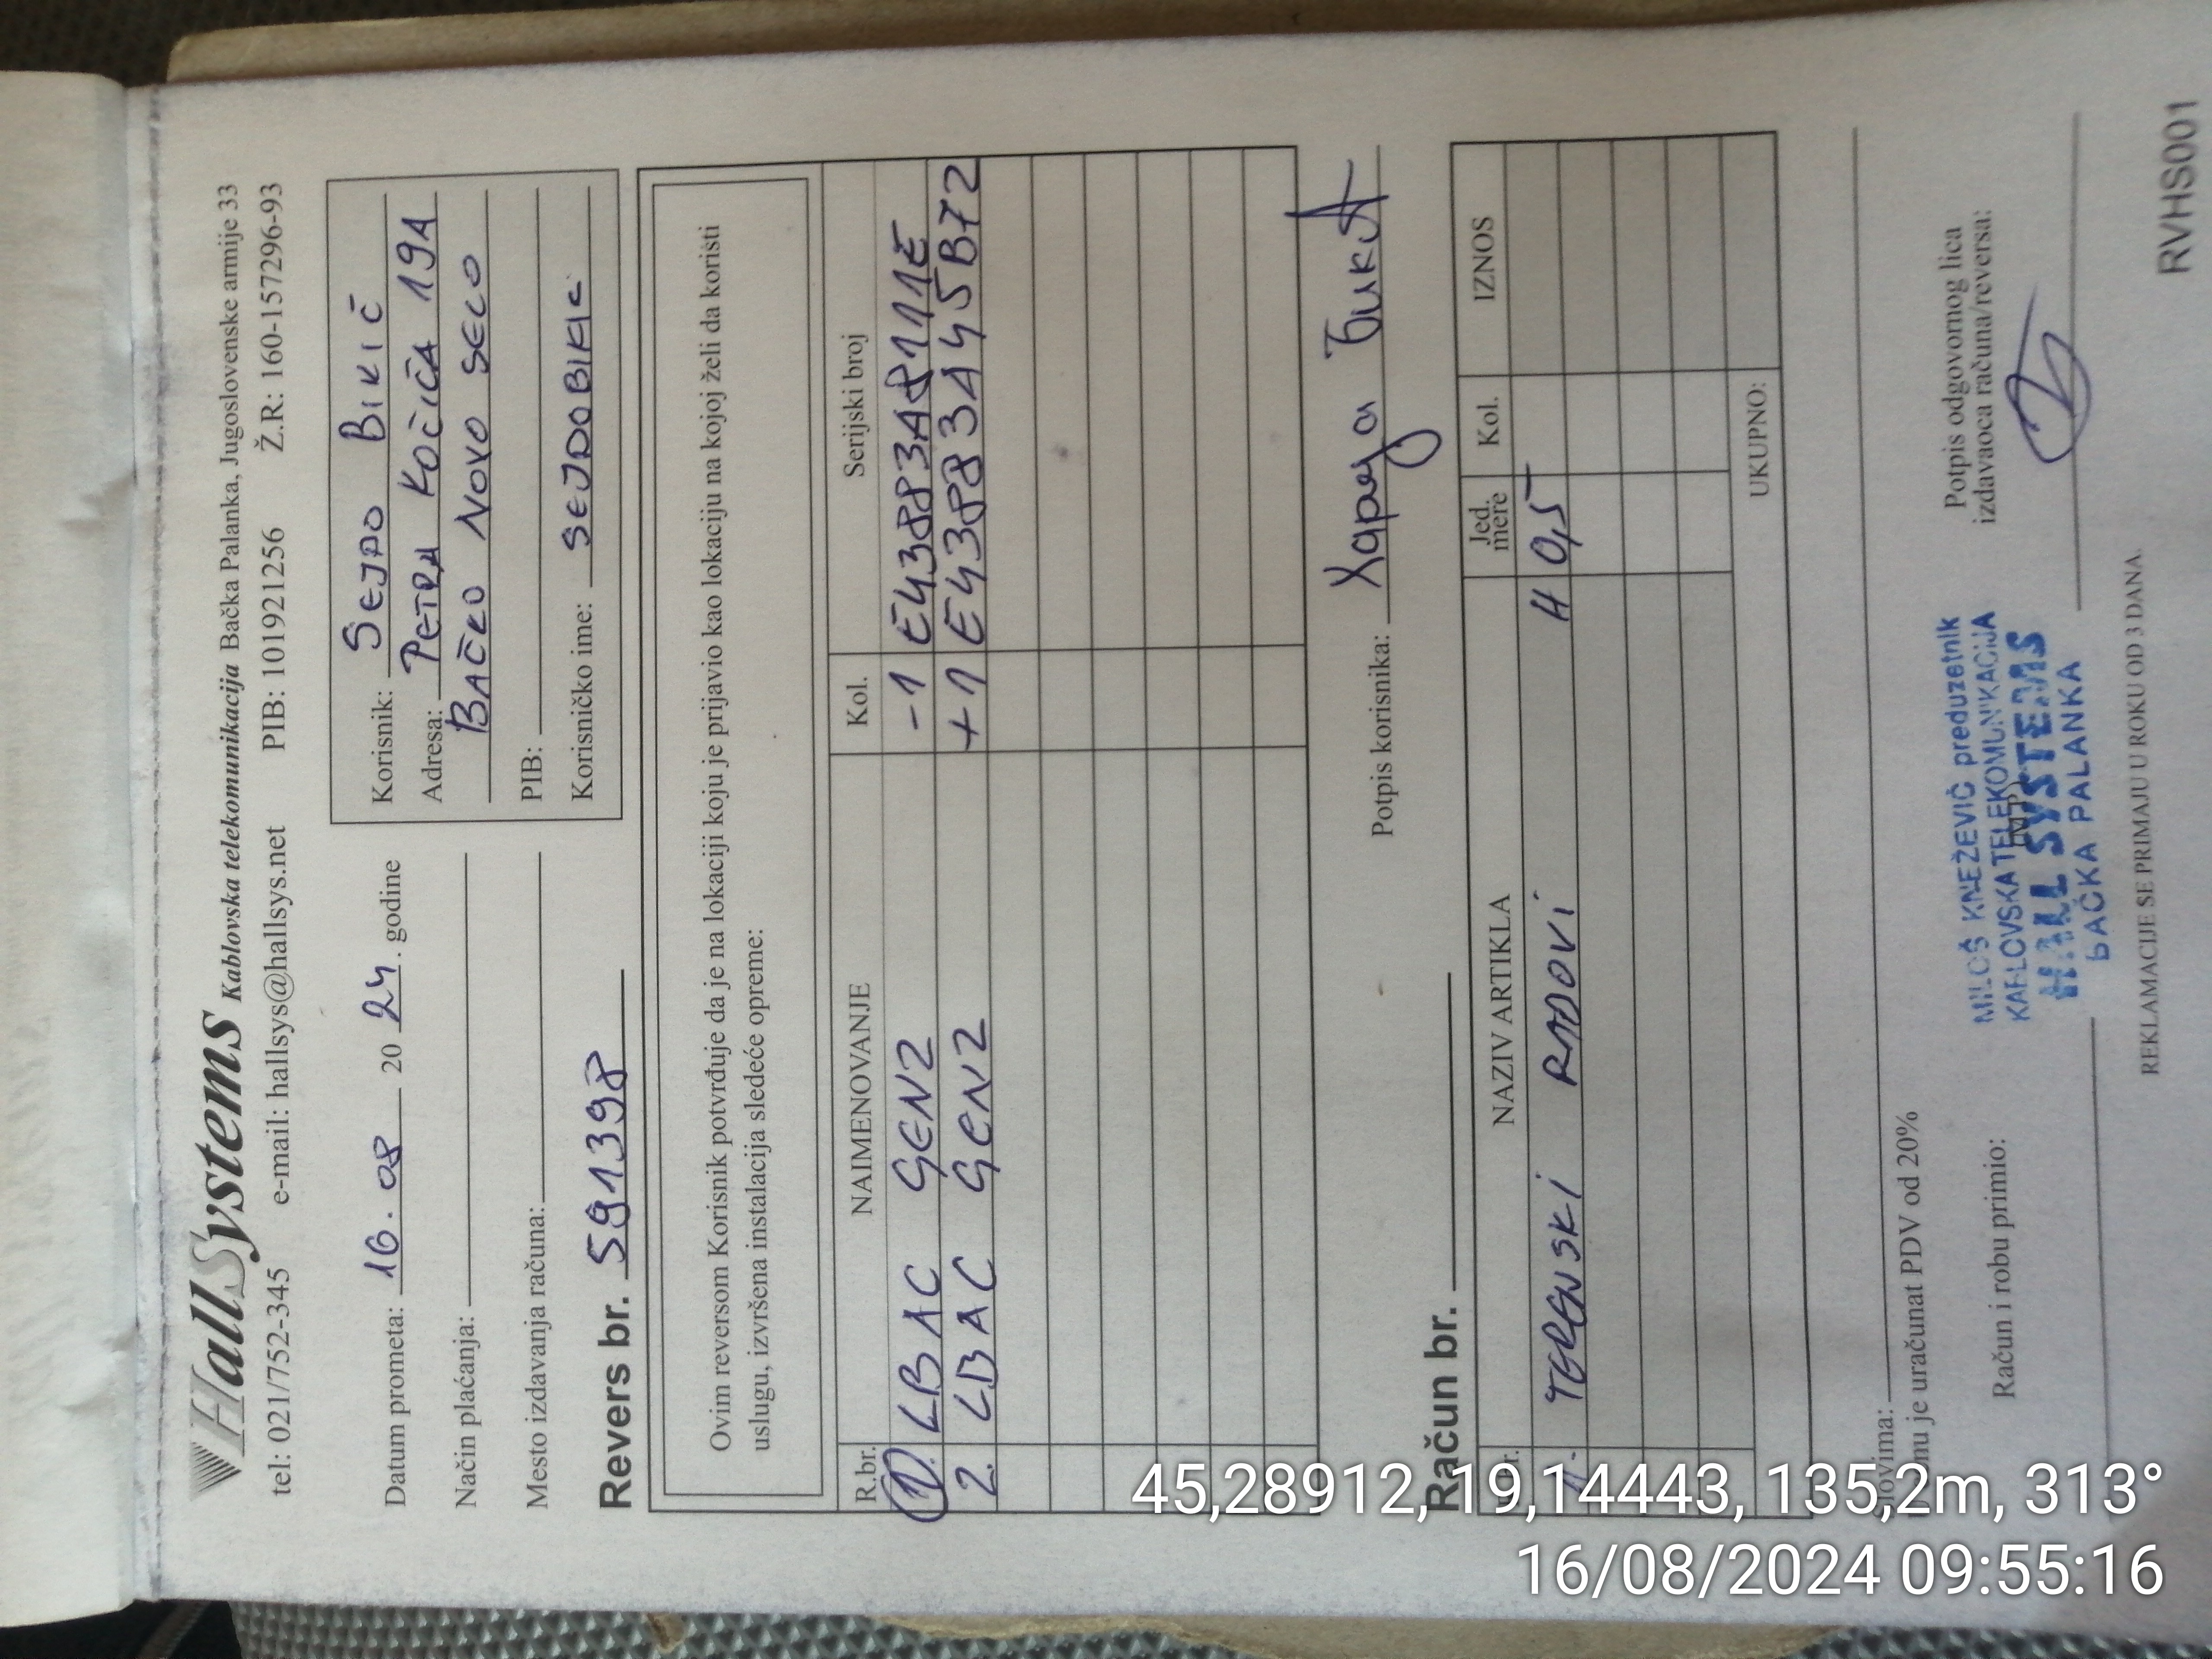 HallSystems Kablovska telekomunikacija Bačka Palanka, Jugoslovenske armije 33
tel: 021/752-345 e-mail: hallsys@hallsys.net PIB: 101921256 Ž.R: 160-157296-93
Datum prometa: 16. 08 20 24. godine
Način plaćanja:
Mesto izdavanja računa:
Korisnik: SEJDO BIKIĆ
Adresa: PETRA KOČIĆA 19A
BAČKO NOVO SELO
PIB:
Korisničko ime: SEJDOBIKIC
Revers br. 591398
Ovim reversom Korisnik potvrđuje da je na lokaciji koju je prijavio kao lokaciju na kojoj želi da koristi
uslugu, izvršena instalacija sledeće opreme:
R.br. NAIMENOVANJE Kol. Serijski broj
1. LBAC GEN2 -1 E43883A8111E
2. LBAC GEN2 +1 E43883A445B72
Potpis korisnika: Бикић
Račun br.
NAZIV ARTIKLA Jed. mere Kol. IZNOS
1. TERENSKI RADOVI H 0,5
UKUPNO:
Slovima:
je uračunat PDV od 20%
Račun i robu primio:
MILOŠ KNEŽEVIĆ preduzetnik
KABLOVSKA TELEKOMUNIKACIJA
HALL SYSTEMS
BAČKA PALANKA
Potpis odgovornog lica
izdavaoca računa/reversa:
REKLAMACIJE SE PRIMAJU U ROKU OD 3 DANA.
RVHS001
45,28912, 19,14443, 135,2m, 313°
16/08/2024 09:55:16